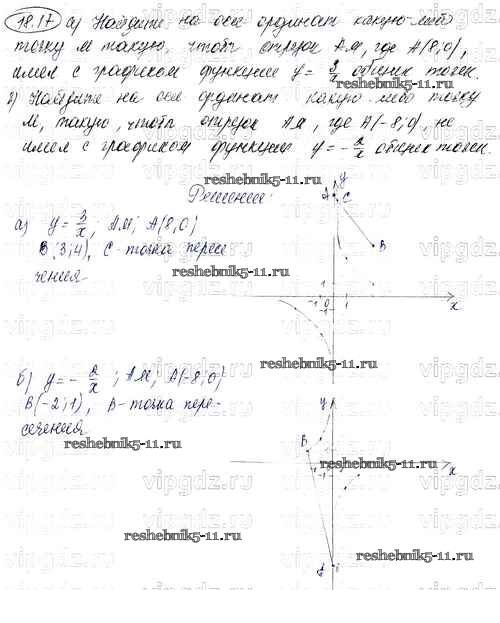 18.17 а) Найдите на оси ординат какую-либо
точку М такую, чтобы отрезок АМ, где А(8,0),
имел с графиком функции y = 3/x общих точек.
б) Найдите на оси ординат какую-либо точку
М, такую, чтобы отрезок АМ, где А(-8,0), не
имел с графиком функции y = -2/x общих точек.
reshebnik5-11.ru
reshebnik5-11.ru
Решение:
а) y = 3/x; АМ; А(8,0)
В(3;4), С-точка пересе
чения
reshebnik5-11.ru
A C
y
B
1
-1 0
-1
x
reshebnik5-11.ru
б) y = -2/x; АМ; А(-8;0)
В(-2;1), В-точка пере-
сечения
reshebnik5-11.ru
y
B
x
A
reshebnik5-11.ru
reshebnik5-11.ru
vipgdz.ru